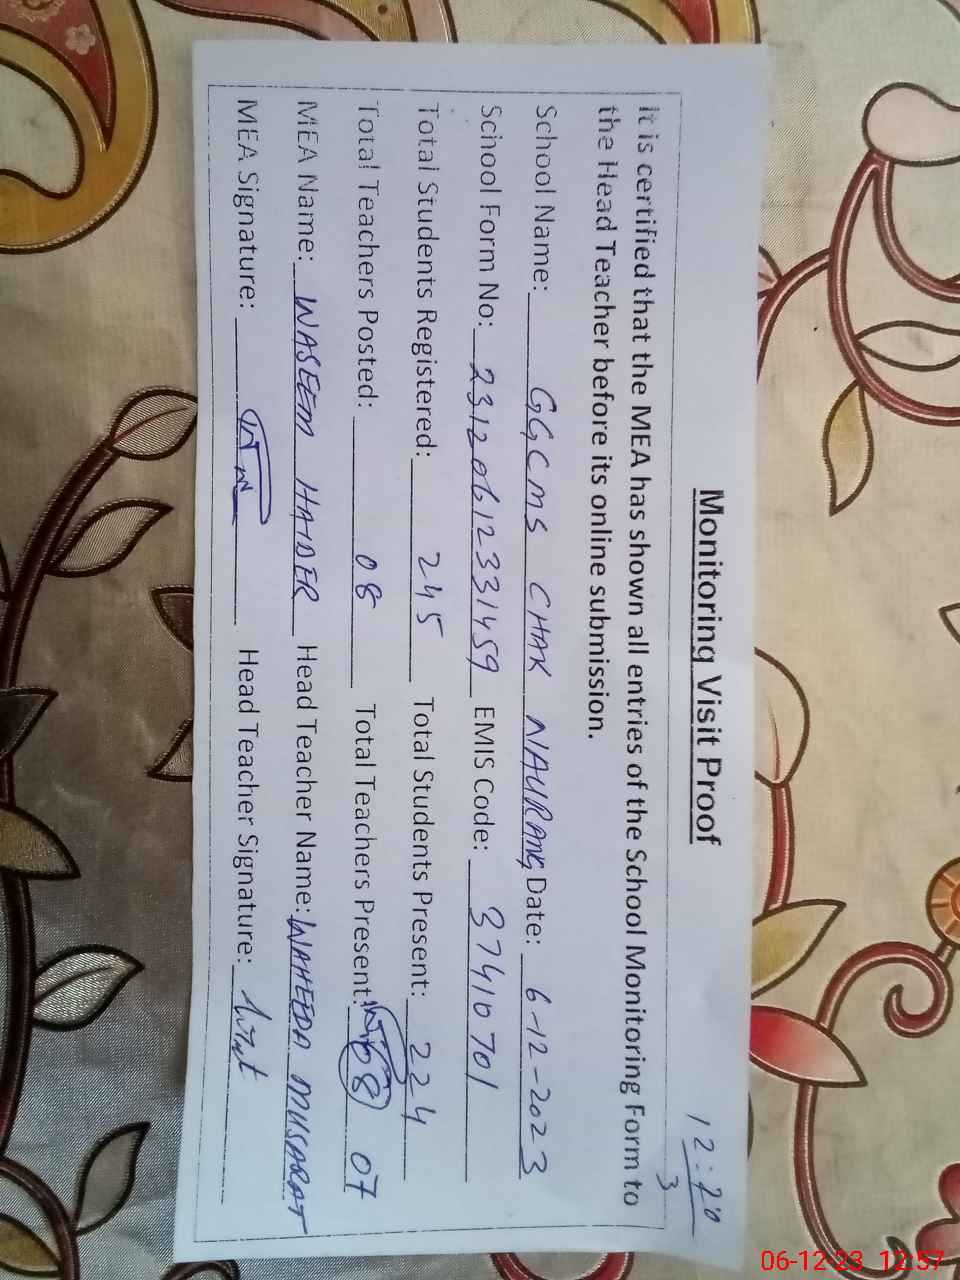 12:20
3
Monitoring Visit Proof
It is certified that the MEA has shown all entries of the School Monitoring Form to
the Head Teacher before its online submission.
School Name: GGCMS CHAK NAURANG Date: 6-12-2023
School Form No: 23120612331459 EMIS Code: 37410701
Total Students Registered: 245 Total Students Present: 224
Total Teachers Posted: 08 Total Teachers Present: 08 07
MEA Name: WASEEM HAIDER Head Teacher Name: WAHEEDA MUSARAT
MEA Signature: Head Teacher Signature:
06-12-23 12:57